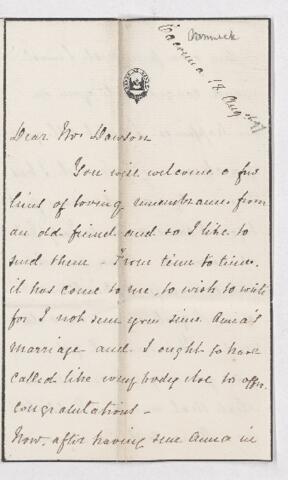 Cacouna 18 Aug
Dear Mrs Dawson
You will welcome a few
lines of loving remembrance from
an old friend and so I like to
send them - From time to time
it has come to me, to wish to write
for I not seen you since Anna's
marriage and I ought to have
called like everybody else to offer
congratulations -
Now, after having seen Anna in